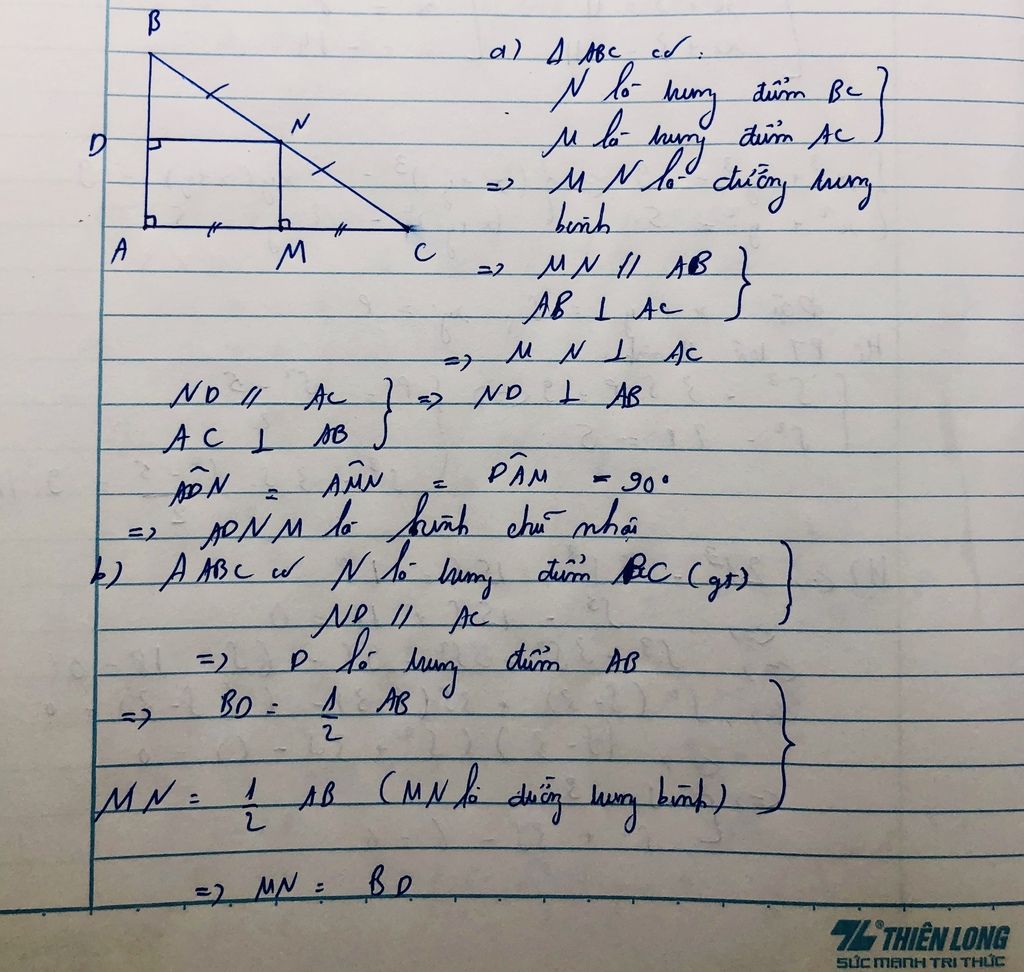 B
D
N
A
M
C
a) Δ ABC có :
N là trung điểm BC
M là trung điểm AC
=> MN là đường trung
bình
=> MN // AB
AB ⊥ AC
=> MN ⊥ AC
ND // AC => ND ⊥ AB
AC ⊥ AB
AD̂N = AM̂N = DÂM = 90°
=> ADNM là hình chữ nhật
b) Δ ABC có N là trung điểm BC (gt)
ND // AC
=> D là trung điểm AB
=> BD = 1/2 AB
MN = 1/2 AB (MN là đường trung bình)
=> MN = BD
THIÊN LONG
SỨC MẠNH TRI THỨC